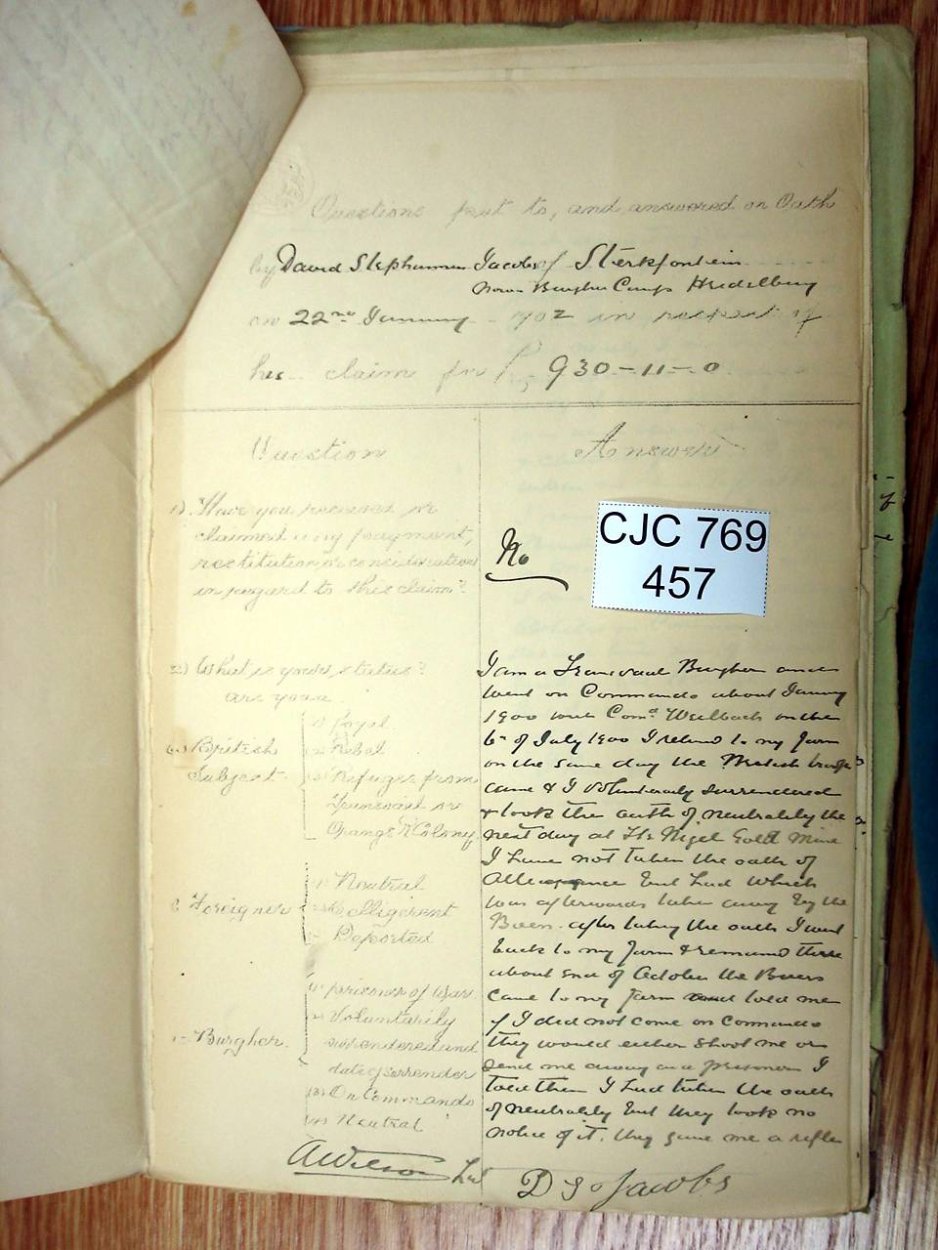 Questions put to, and answered on Oath
by David Stephanus Jacobs of Sterkfontein
now Burgher Camp Heidelburg
on 22nd January 1902 in respect of
his claim for £ 930-11-0
Question
Answer
1) Have you received or
claimed any payment,
restitution or consideration
in regard to this claim?
No
CJC 769
457
2) What is your status?
are you a
British
Subject
Loyal
Rebel
Refugee from
Transvaal or
Orange R Colony
Foreigner
Neutral
Belligerent
Deported
Burgher
prisoner of War
Voluntarily
surrendered and
date of surrender
On Commando
Neutral
I am a Transvaal Burgher and
went on Commando about January
1900 with Comdt Weilbach on the
6th of July 1900 I returned to my farm
on the same day the British troops
came & I voluntarily surrendered
& took the oath of neutrality the
next day at the Nigel Gold Mine
I have not taken the oath of
Allegiance but had which
was afterwards taken away by the
Boers. after taking the oath I went
back to my farm & remained there
about end of October the Boers
came to my farm and told me
if I did not come on Commando
they would either shoot me or
send me away as a prisoner I
told them I had taken the oath
of neutrality but they took no
notice of it. they gave me a rifle
AWilson
D S Jacobs